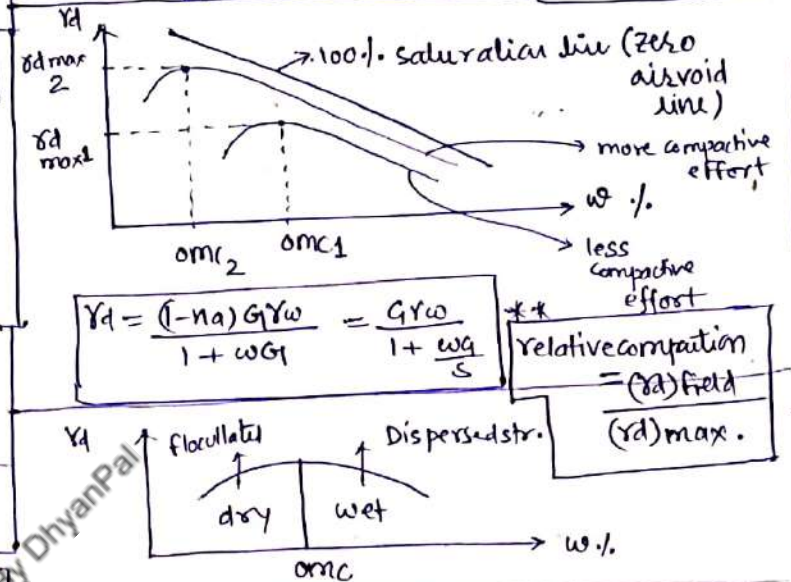 γd
γd max 2
100%. saturation line (zero airvoid line)
γd max1
more compactive effort
w %.
omc2 omc1
less compactive effort
γd = (1-na)Gγw / 1+wG = Gγw / 1+ wG/S
**
relative compaction = (γd)field / (γd)max.
γd
flocullated
Dispersed str.
dry
wet
w.%
omc
DhyanPal